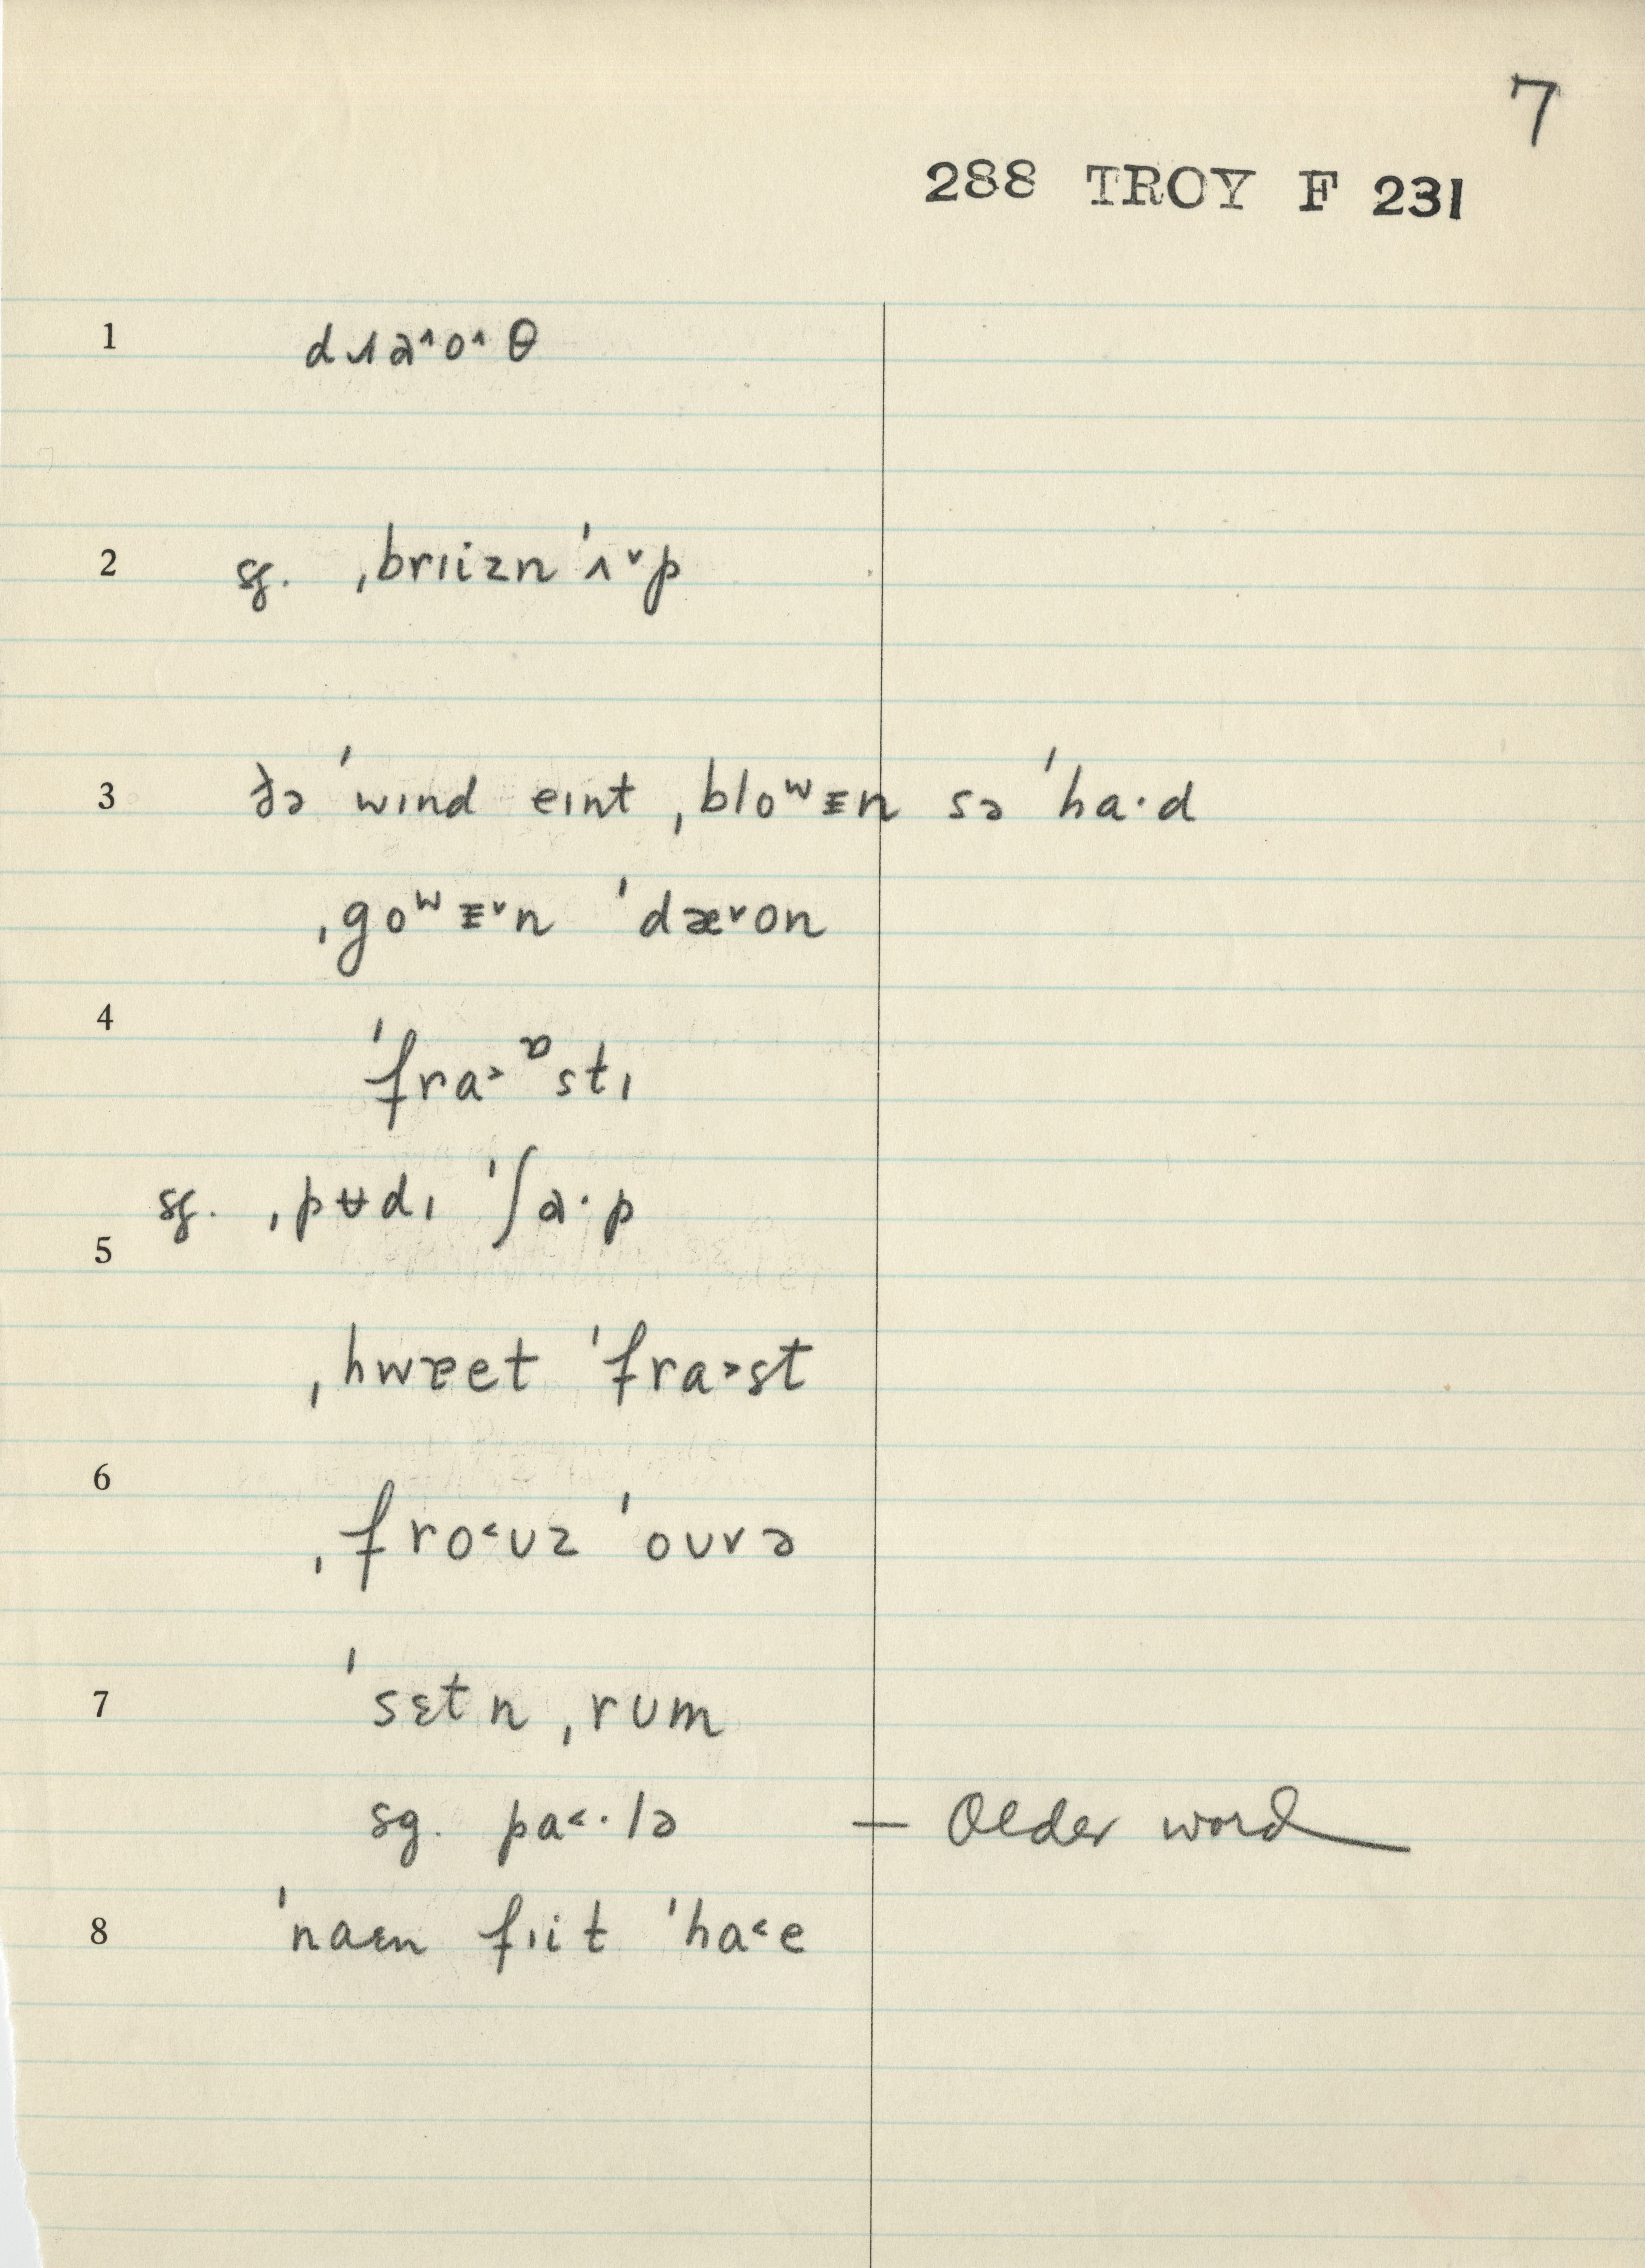 7
288 TROY F 231
1 dɹɒ^o^θ
2 sg. ˌbrɪizn ˈʌ˅p
3 ðə ˈwɪnd eɪnt ˌbloʷᴈn sə ˈha·d
ˌgoʷᴈ˅n ˈdæ˅on
4 ˈfra˃ᶛstɪ
sg. ˌpʉdɪ ˈʃɒ·p
5
ˌhwɐet ˈfra˃st
6
ˌfro˂ʊz ˈoʊvə
7 ˈsɛtn ˌrʊm
sg. pa˂·lə — Older word
8 ˈnaɛn fɪit ˈha˂e